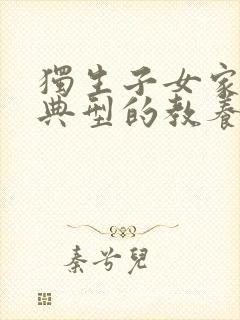 獨生子女家
典型的教養
秦兮兒